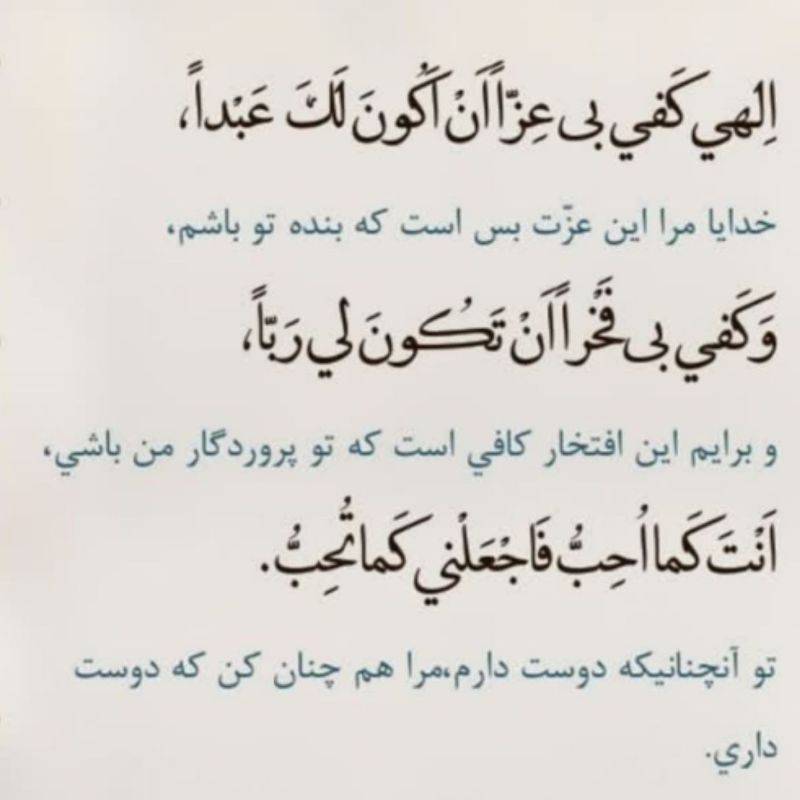 اِلهي كَفي بي عِزّاً اَنْ اَكُونَ لَكَ عَبْداً،
خدایا مرا این عزّت بس است که بنده تو باشم،
وَكَفي بي فَخْراً اَنْ تَكُونَ لي رَبّاً،
و برایم این افتخار کافي است که تو پروردگار من باشي،
اَنْتَ كَما اُحِبُّ فَاجْعَلْني كَما تُحِبُّ.
تو آنچنانیکه دوست دارم،مرا هم چنان کن که دوست
داري.